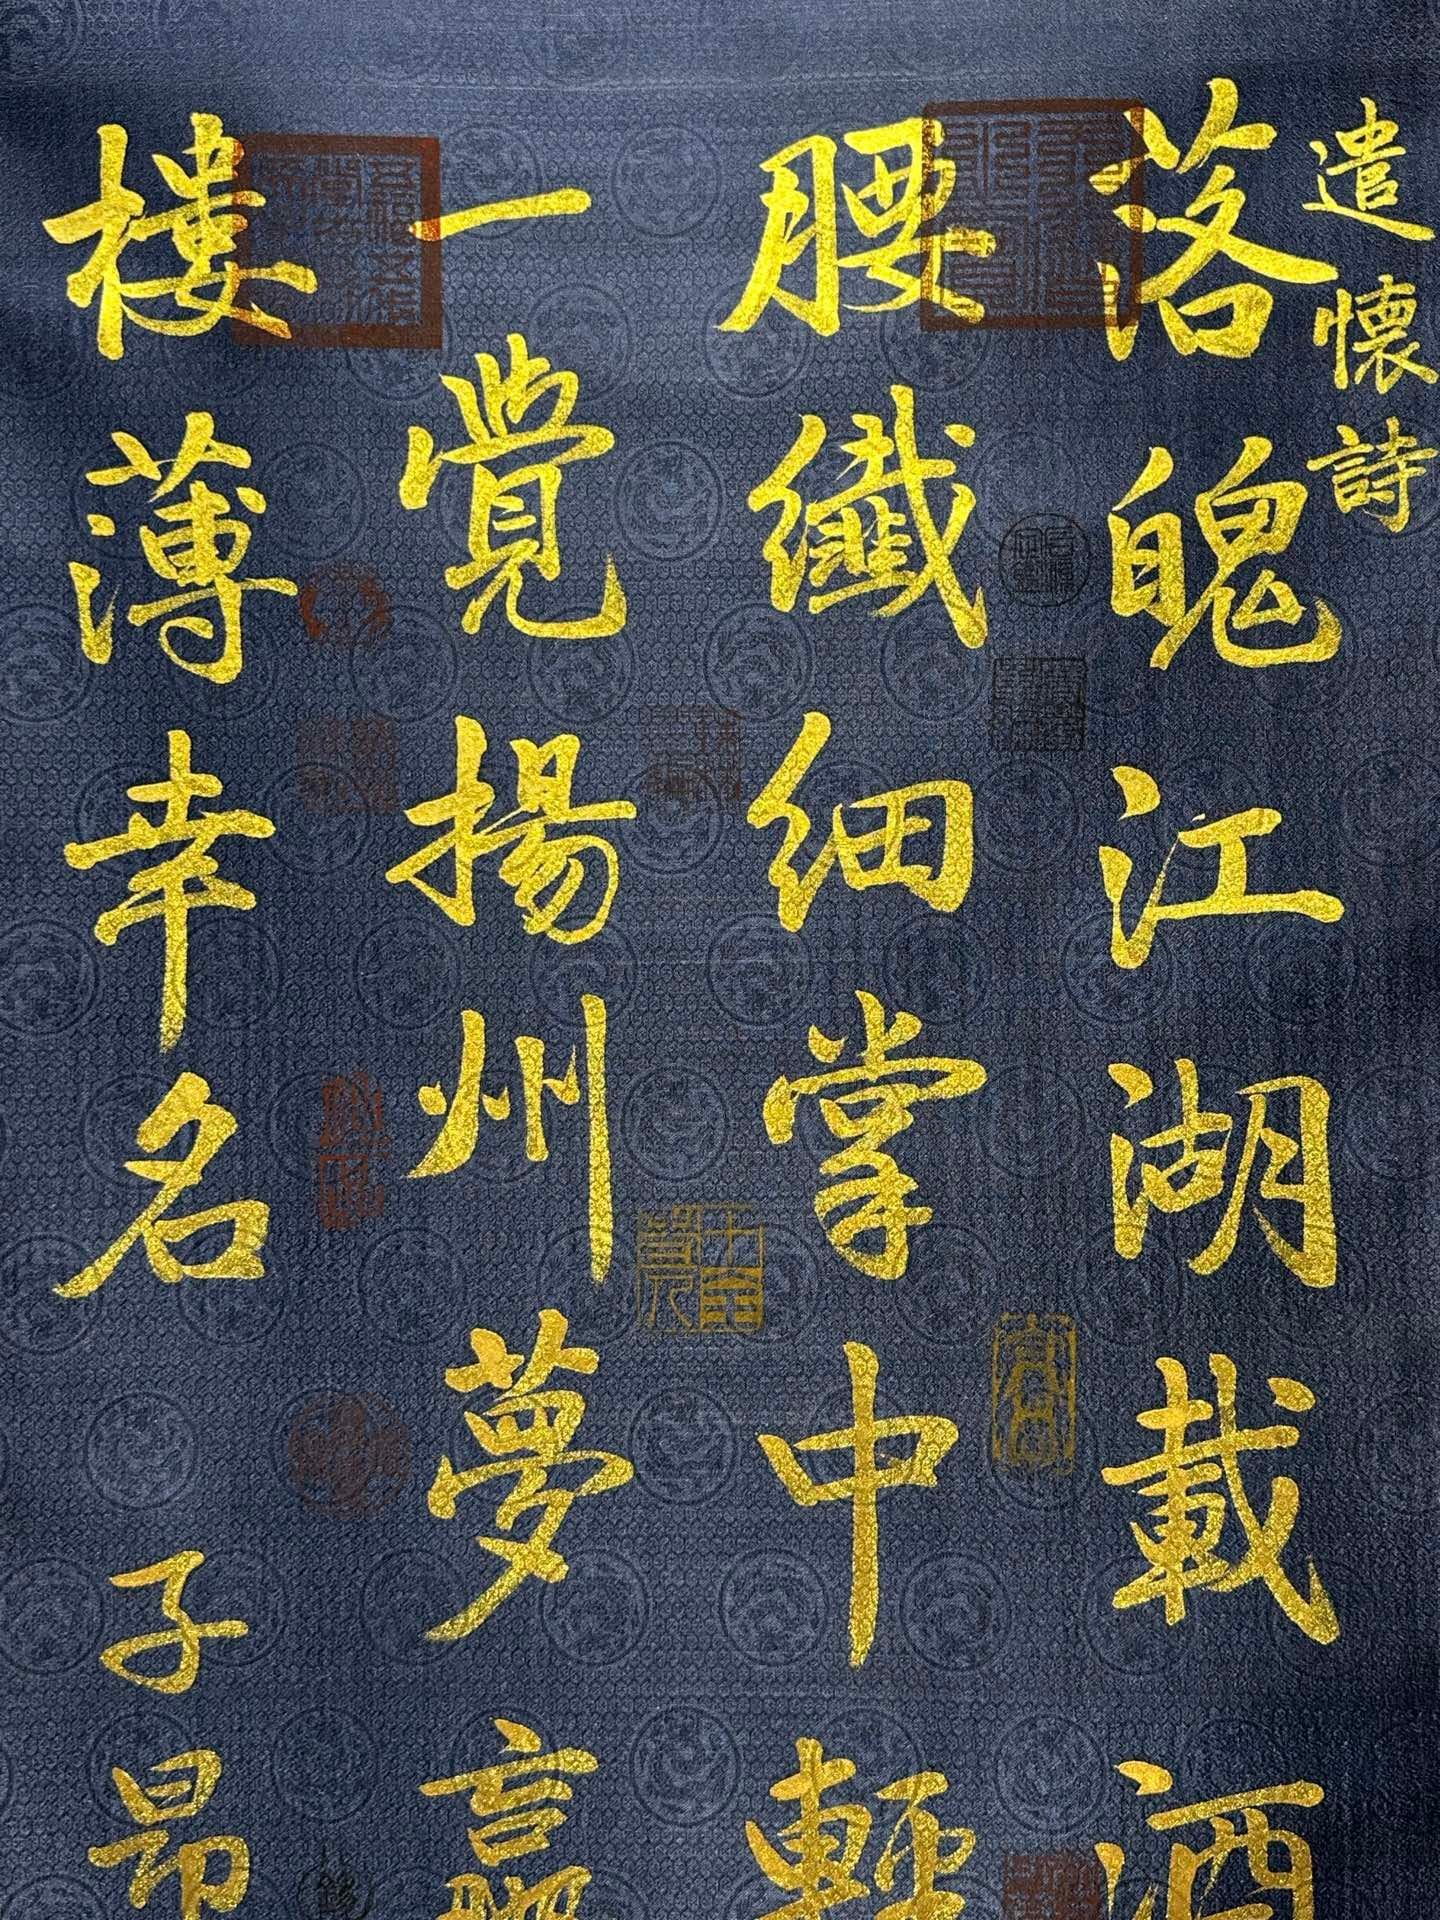 遣懷詩
落魄江湖載酒
腰纖細掌中輕
一覺揚州夢贏
樓薄幸名 子昂